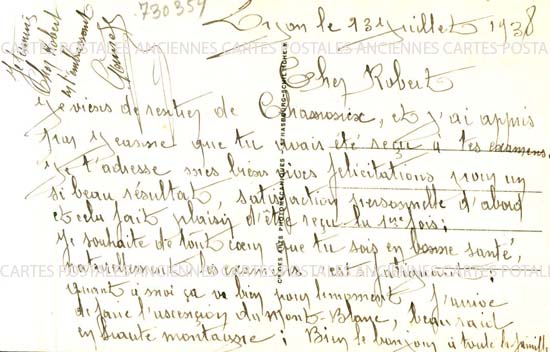 730359
Lyon le 13 Juillet 1938
Cher Robert
Je viens de rentrer de Chamonix, et j'ai appris
par Jeanne que tu avais été reçu à tes examens.
Je t'adresse mes bien vives félicitations pour un
si beau résultat, satisfaction personnelle d'abord
et cela fait plaisir d'être reçu la 1ère fois;
Je souhaite de tout cœur que tu sois en bonne santé,
naturellement les examens c'est fatiguant;
Quant à moi ça va bien pour l'moment. J'arrive
de faire l'ascension du Mont-Blanc, beau
en haute montagne; Bien le bonjour à toute la famille
Je termine
Cher Robert
en t'embrassant
CARTES POSTALES ANCIENNES CARTES POSTALES ANCIENNES CARTES POSTALES
CARTES POSTALES ANCIENNES CARTES POSTALES ANCIENNES CARTES POSTALES
CARTES D'ART PHOTOMECANIQUES - STRASBOURG-SCHILTIGHEIM